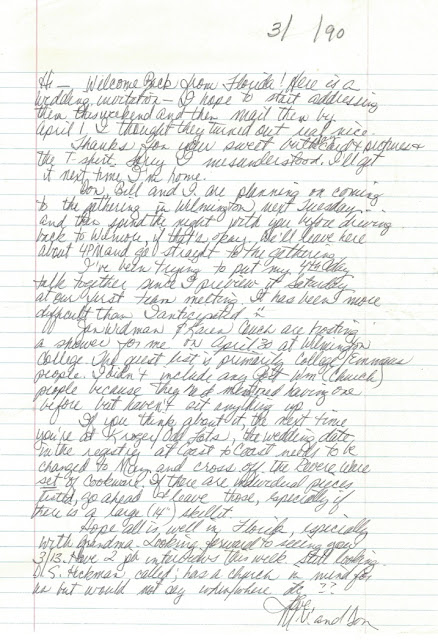 3/ /90
Hi — Welcome Back from Florida! Here is a
wedding invitation — I hope to start addressing
them this weekend and then mail them by
April 1. I thought they turned out real nice.
Thanks for your sweet birthday card & pictures &
the T-shirt. Sorry I misunderstood. I'll get
it next time I'm home.
Don, Bill and I are planning on coming
to the gathering in Wilmington next Tuesday
and then spend the night with you before driving
back to Wilmore, if that's okay. We'll leave here
about 4PM and go straight to the gathering.
I've been trying to put my 4th day
talk together since I preview it Saturday
at our first team meeting. It has been more
difficult than I anticipated
Jan Widman & Karen Couch are hosting
a shower for me on April 30 at Wilmington
College. The guest list is primarily College/Emmaus
people. I didn't include any Wm (Church)
people because they had mentioned having one
before but haven't set anything up.
If you think about it the next time
you're at Kroger/Odd Lots, the wedding date
in the registry at Coast to Coast needs to be
changed to May and cross off the Revere Ware
set of cookware. If there are individual pieces
listed, go ahead & leave those, especially if
there is a large (14") skillet.
Hope all is well in Florida especially
with Grandma. Looking forward to seeing you
3/13. Have 2 job interviews this week. Still looking.
D.S. Heckman, called; has a church in mind for
us but would not say when/where
Love,
and Don